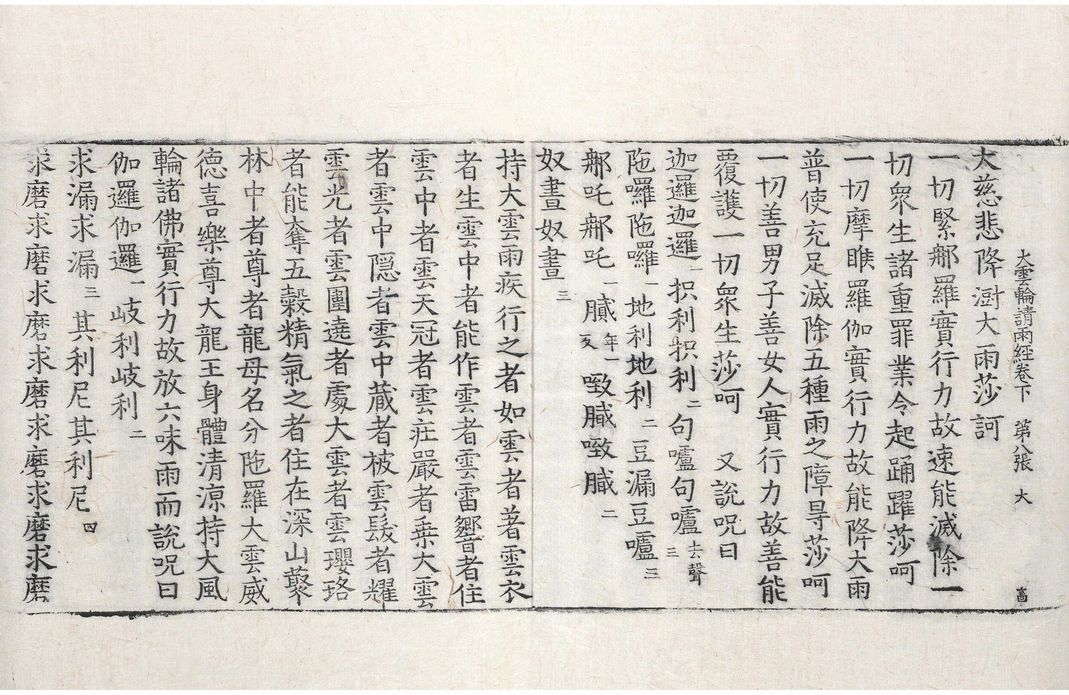 大雲輪請雨經卷下　第八張　大
大慈悲降澍大雨莎訶
一切緊那羅實行力故速能滅除一
切衆生諸重罪業令起踊躍莎呵
一切摩睺羅伽實行力故能降大雨
普使充足滅除五種雨之障㝵莎呵
一切善男子善女人實行力故善能
覆護一切衆生莎呵　又說呪曰
迦邏迦邏一枳利枳利二句嚧句嚧去聲三
陁囉陁囉一地利地利二豆漏豆嚧三
那吒那吒一膩年一反㗌膩㗌膩二
奴晝奴晝三
持大雲雨疾行之者如雲者著雲衣
者生雲中者能作雲者雲雷響者住
雲中者雲天冠者雲莊嚴者乘大雲
者雲中隱者雲中藏者被雲髮者耀
雲光者雲圍遶者處大雲者雲瓔珞
者能奪五穀精氣之者住在深山藂
林中者尊者龍母名分陁羅大雲威
德喜樂尊大龍王身體清涼持大風
輪諸佛實行力故放六味雨而說呪曰
伽邏伽邏一岐利岐利二
求漏求漏三其利尼其利尼四
求磨求磨求磨求磨求磨求磨求磨